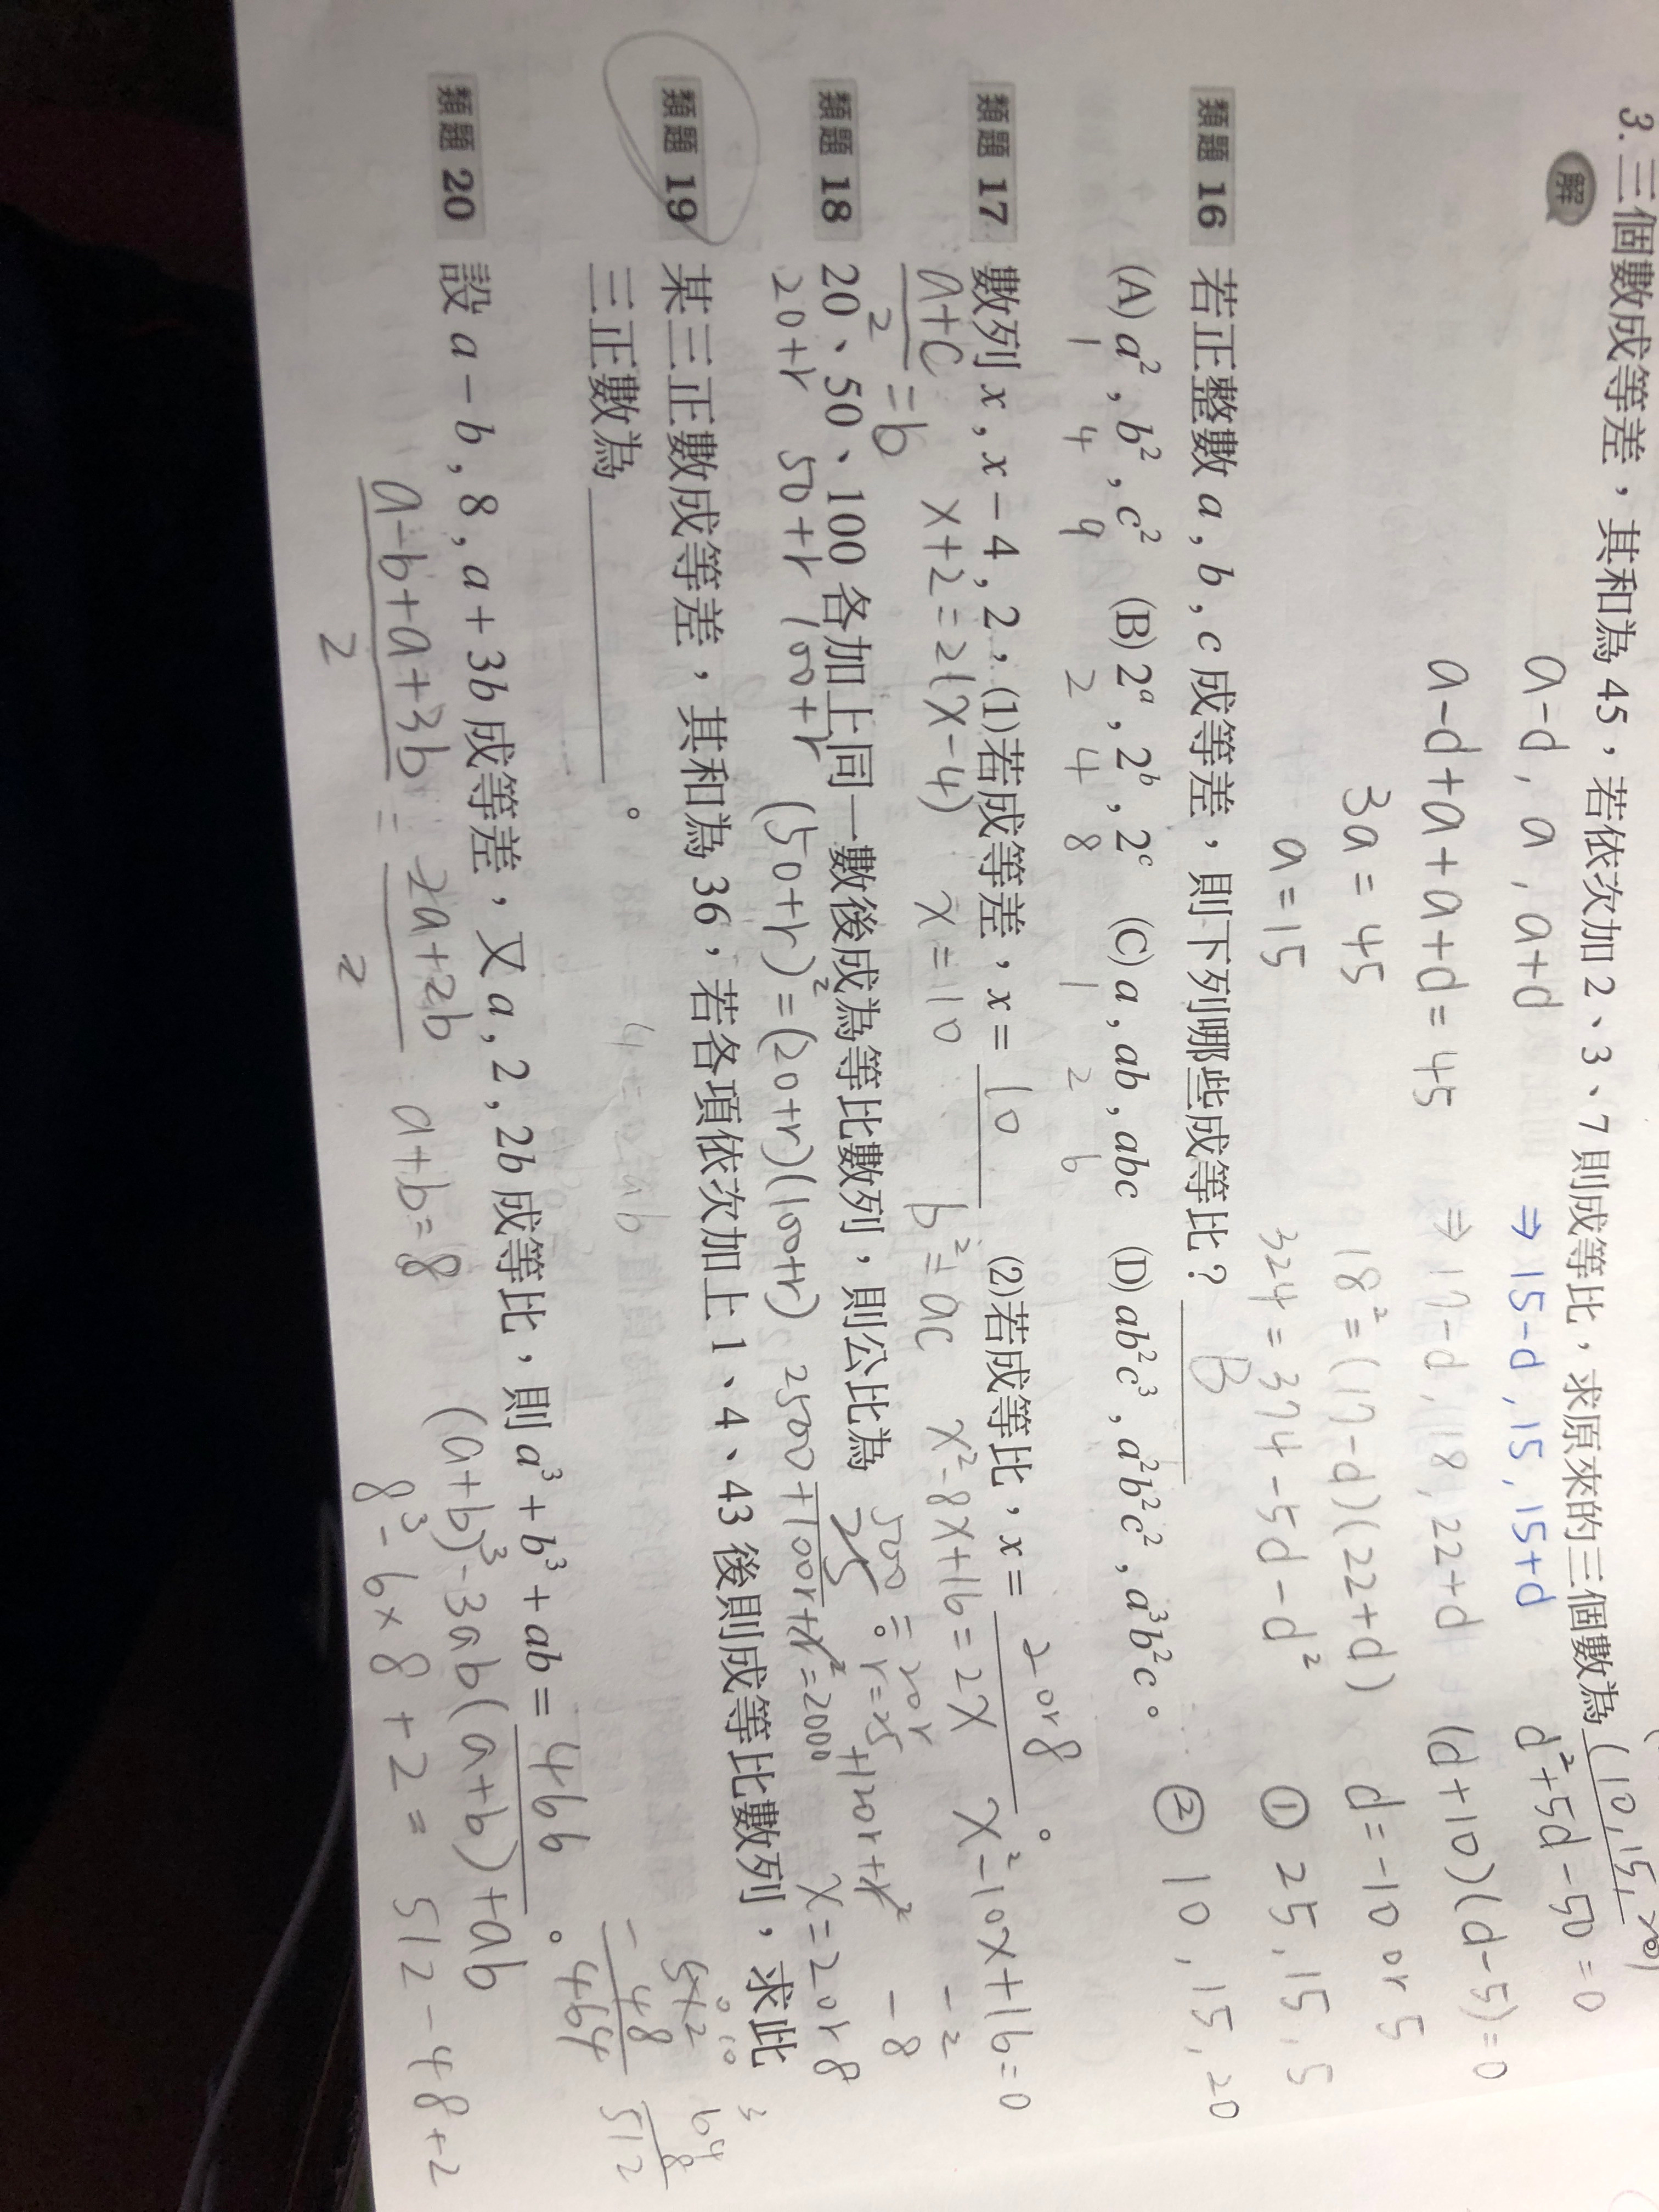 3. 三個數成等差，其和為 45，若依次加 2、3、7 則成等比，求原來的三個數為 (10, 15, 20)
解
a-d, a, a+d ⇒ 15-d, 15, 15+d d²+5d-50=0
a-d+a+a+d=45 ⇒ 17-d, 18, 22+d (d+10)(d-5)=0
3a=45 18²=(17-d)(22+d) d=-10 or 5
a=15 324=374-5d-d² ① 25, 15, 5
② 10, 15, 20
類題 16 若正整數 a , b , c 成等差，則下列哪些成等比？ B
(A) a² , b² , c² (B) 2ᵃ , 2ᵇ , 2ᶜ (C) a , ab , abc (D) ab²c³ , a²b²c² , a³b²c。
1 4 9 2 4 8 1 2 6
類題 17 數列 x , x − 4 , 2，(1)若成等差，x = 10 (2)若成等比，x = 2 or 8。
a+c/2=b x+2=2(x-4) x=10 b²=ac x²-8x+16=2x x²-10x+16=0
-2
-8
x=2 or 8
類題 18 20、50、100 各加上同一數後成為等比數列，則公比為。
500=20r
r=25
20+r 50+r 100+r (50+r)²=(20+r)(100+r) 2500+100r+r²=2000+120r+r²
類題 19 某三正數成等差，其和為 36，若各項依次加上 1、4、43 後則成等比數列，求此
三正數為。
類題 20 設 a − b , 8 , a + 3b 成等差，又 a , 2 , 2b 成等比，則 a³ + b³ + ab = 466。
a-b+a+3b/2=2a+2b/2 a+b=8 (a+b)³-3ab(a+b)+ab
8³-6×8+2=512-48+2
512
-48
464
64
8
512